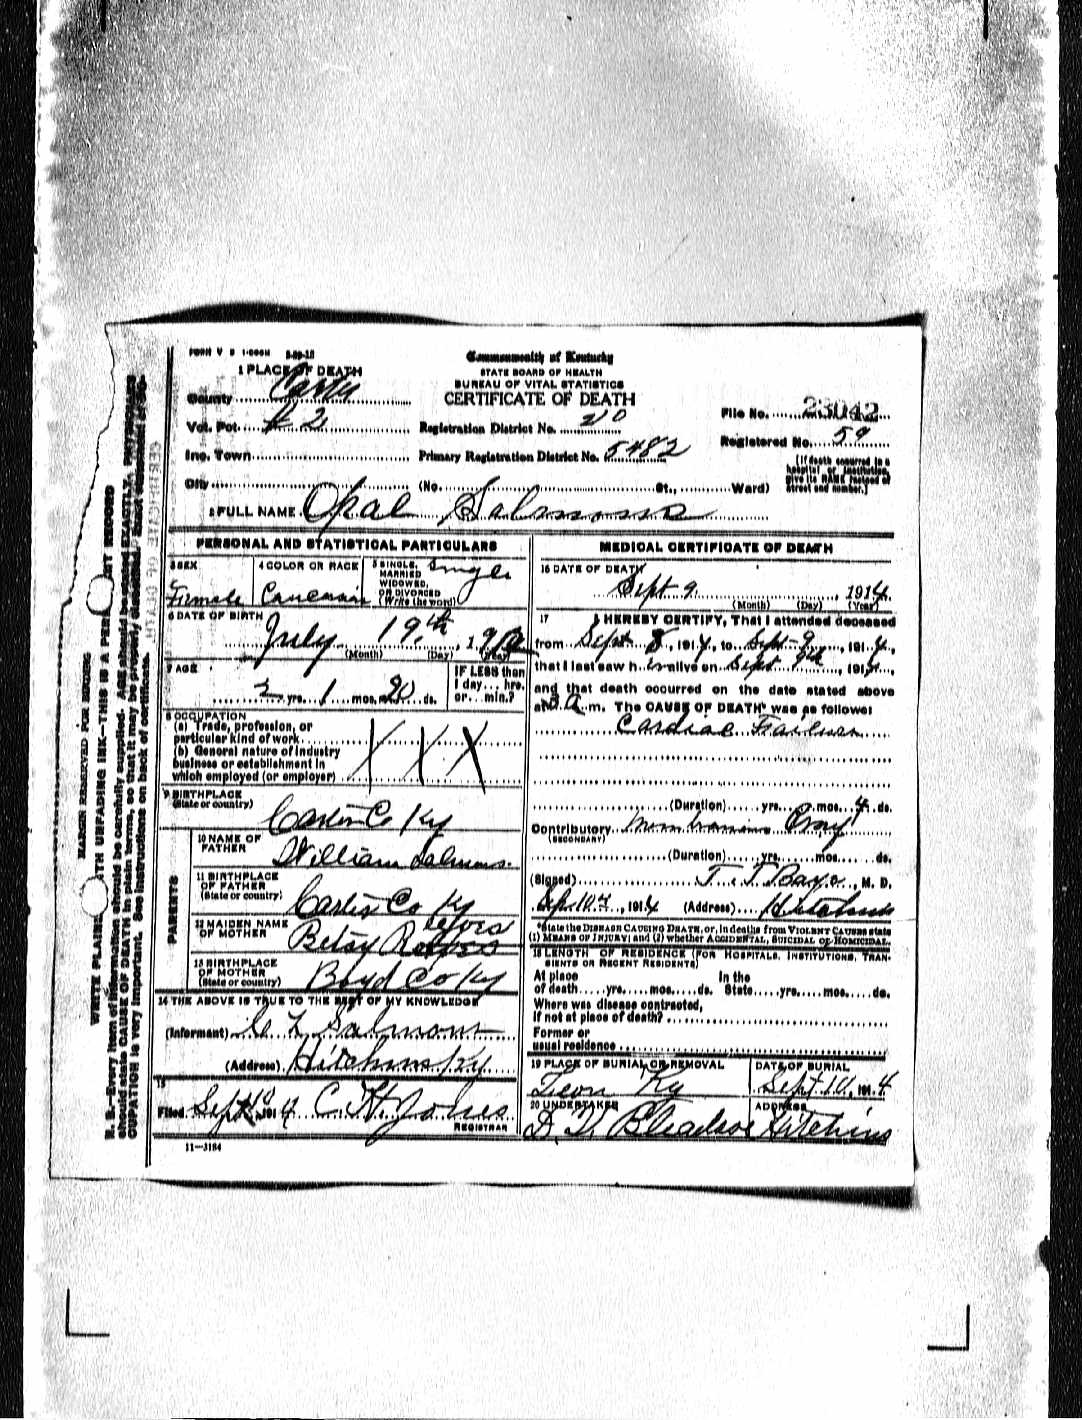 FORM V S 1-500M 5-29-13
Commonwealth of Kentucky
STATE BOARD OF HEALTH
BUREAU OF VITAL STATISTICS
CERTIFICATE OF DEATH
1 PLACE OF DEATH
County Carter
Vot. Pct. # 2
Registration District No. 210
File No. 23042
Inc. Town
Primary Registration District No. 5482
Registered No. 59
City (No. St., Ward)
(If death occurred in a hospital or institution, give its NAME instead of street and number.)
2 FULL NAME Opal Salmons
PERSONAL AND STATISTICAL PARTICULARS
3 SEX
Female
4 COLOR OR RACE
Caucasian
5 SINGLE, MARRIED WIDOWED, OR DIVORCED (Write the word)
Single
6 DATE OF BIRTH
July 19th, 1912
(Month) (Day) (Year)
7 AGE
2 yrs. 1 mos. 20 ds.
IF LESS than 1 day... hrs. or... min.?
8 OCCUPATION
(a) Trade, profession, or
particular kind of work
(b) General nature of industry
business or establishment in
which employed (or employer)
X X X
9 BIRTHPLACE
(State or country)
Carter Co Ky
PARENTS
10 NAME OF FATHER
William Salmons.
11 BIRTHPLACE OF FATHER (State or country)
Carter Co Ky
12 MAIDEN NAME OF MOTHER
Betsy
13 BIRTHPLACE OF MOTHER (State or country)
Boyd Co Ky
14 THE ABOVE IS TRUE TO THE BEST OF MY KNOWLEDGE
(Informant) C L Salmons
(Address) Hitchins Ky.
15
Filed Sept 10, 1914 C. H. Jones
REGISTRAR
11-3184
MEDICAL CERTIFICATE OF DEATH
16 DATE OF DEATH
Sept 9, 1914
(Month) (Day) (Year)
17 I HEREBY CERTIFY, That I attended deceased
from Sept 8, 1914, to Sept 9, 1914,
that I last saw h alive on Sept 9th, 1914,
and that death occurred on the date stated above
at A m. The CAUSE OF DEATH* was as follows:
Cardiac Failure
(Duration) yrs. mos. 4 ds.
Contributory Membranous
(SECONDARY)
(Duration) yrs. mos. ds.
(Signed) M. D.
Sep 10, 1914 (Address) Hitchins
*State the DISEASE CAUSING DEATH, or, in deaths from VIOLENT CAUSES state
(1) MEANS OF INJURY; and (2) whether ACCIDENTAL, SUICIDAL or HOMICIDAL.
18 LENGTH OF RESIDENCE (FOR HOSPITALS, INSTITUTIONS, TRANSIENTS OR RECENT RESIDENTS)
At place of death yrs. mos. ds. In the State yrs. mos. ds.
Where was disease contracted,
if not at place of death?
Former or
usual residence
19 PLACE OF BURIAL OR REMOVAL
Leon Ky
DATE OF BURIAL
Sept. 10, 1914
20 UNDERTAKER
D. V. Bledsoe
ADDRESS
Hitchins
MARGIN RESERVED FOR BINDING
WRITE PLAINLY WITH UNFADING INK—THIS IS A PERMANENT RECORD
N. B.—Every item of information should be carefully supplied. AGE should be stated EXACTLY. PHYSICIANS
should state CAUSE OF DEATH in plain terms, so that it may be properly classified. Exact statement of OC-
CUPATION is very important. See instructions on back of certificate.